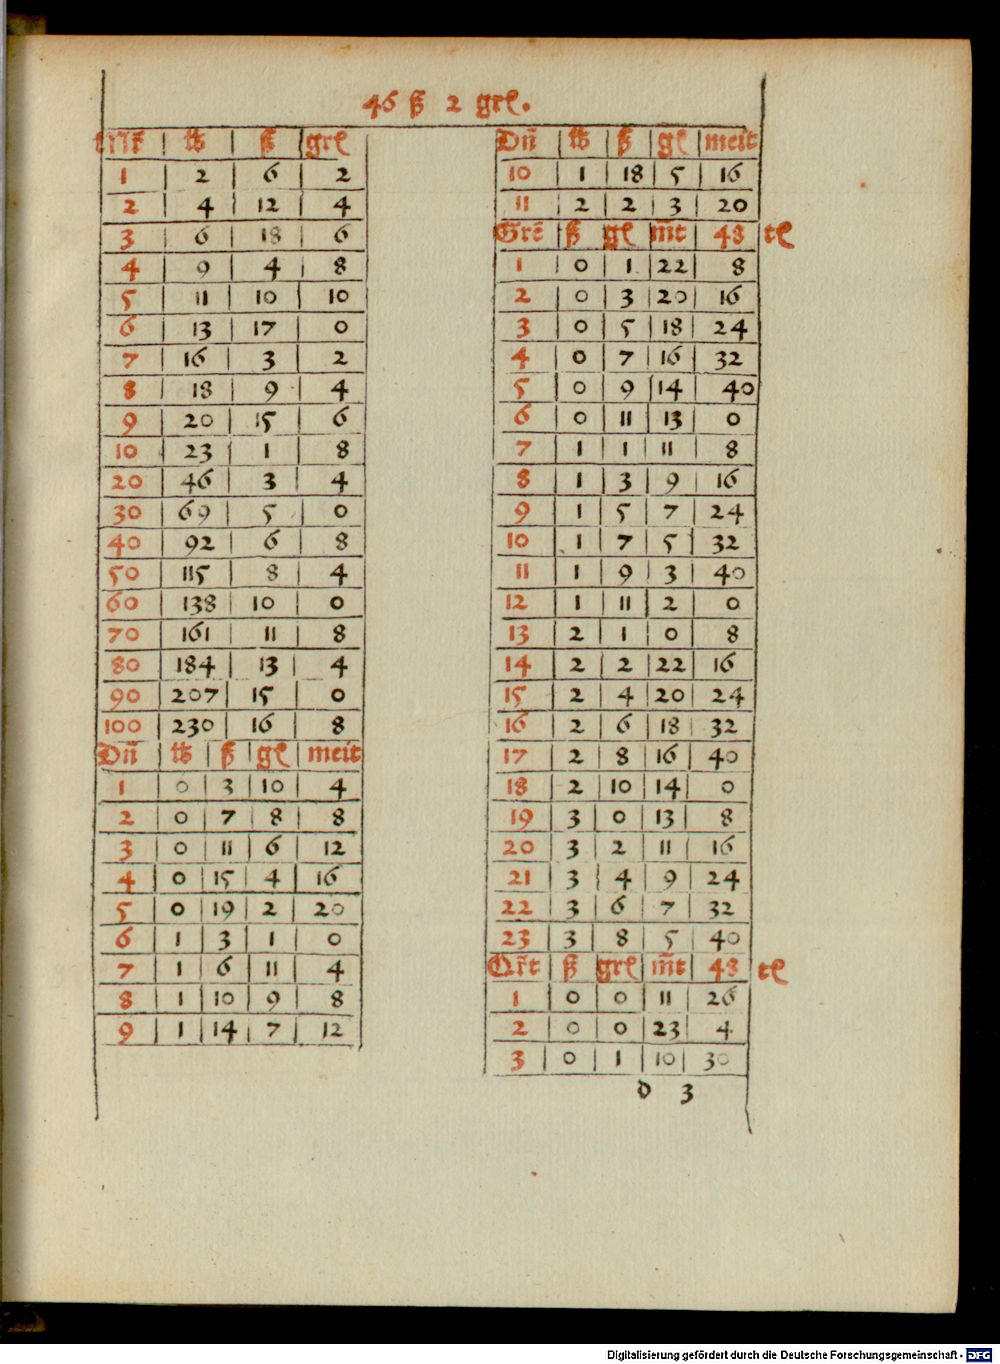 46 ß 2 grl.
Mr̄ | lb | ß | grl
1 | 2 | 6 | 2
2 | 4 | 12 | 4
3 | 6 | 18 | 6
4 | 9 | 4 | 8
5 | 11 | 10 | 10
6 | 13 | 17 | 0
7 | 16 | 3 | 2
8 | 18 | 9 | 4
9 | 20 | 15 | 6
10 | 23 | 1 | 8
20 | 46 | 3 | 4
30 | 69 | 5 | 0
40 | 92 | 6 | 8
50 | 115 | 8 | 4
60 | 138 | 10 | 0
70 | 161 | 11 | 8
80 | 184 | 13 | 4
90 | 207 | 15 | 0
100 | 230 | 16 | 8
Dn̄ | lb | ß | gl | meit
1 | 0 | 3 | 10 | 4
2 | 0 | 7 | 8 | 8
3 | 0 | 11 | 6 | 12
4 | 0 | 15 | 4 | 16
5 | 0 | 19 | 2 | 20
6 | 1 | 3 | 1 | 0
7 | 1 | 6 | 11 | 4
8 | 1 | 10 | 9 | 8
9 | 1 | 14 | 7 | 12
Dn̄ | lb | ß | gl | meit
10 | 1 | 18 | 5 | 16
11 | 2 | 2 | 3 | 20
Grē | ß | gl | m̄t | 48 tl
1 | 0 | 1 | 22 | 8
2 | 0 | 3 | 20 | 16
3 | 0 | 5 | 18 | 24
4 | 0 | 7 | 16 | 32
5 | 0 | 9 | 14 | 40
6 | 0 | 11 | 13 | 0
7 | 1 | 1 | 11 | 8
8 | 1 | 3 | 9 | 16
9 | 1 | 5 | 7 | 24
10 | 1 | 7 | 5 | 32
11 | 1 | 9 | 3 | 40
12 | 1 | 11 | 2 | 0
13 | 2 | 1 | 0 | 8
14 | 2 | 2 | 22 | 16
15 | 2 | 4 | 20 | 24
16 | 2 | 6 | 18 | 32
17 | 2 | 8 | 16 | 40
18 | 2 | 10 | 14 | 0
19 | 3 | 0 | 13 | 8
20 | 3 | 2 | 11 | 16
21 | 3 | 4 | 9 | 24
22 | 3 | 6 | 7 | 32
23 | 3 | 8 | 5 | 40
Qr̄t | ß | grl | m̄t | 48 tl
1 | 0 | 0 | 11 | 26
2 | 0 | 0 | 23 | 4
3 | 0 | 1 | 10 | 30
d 3
Digitalisierung gefördert durch die Deutsche Forschungsgemeinschaft - DFG